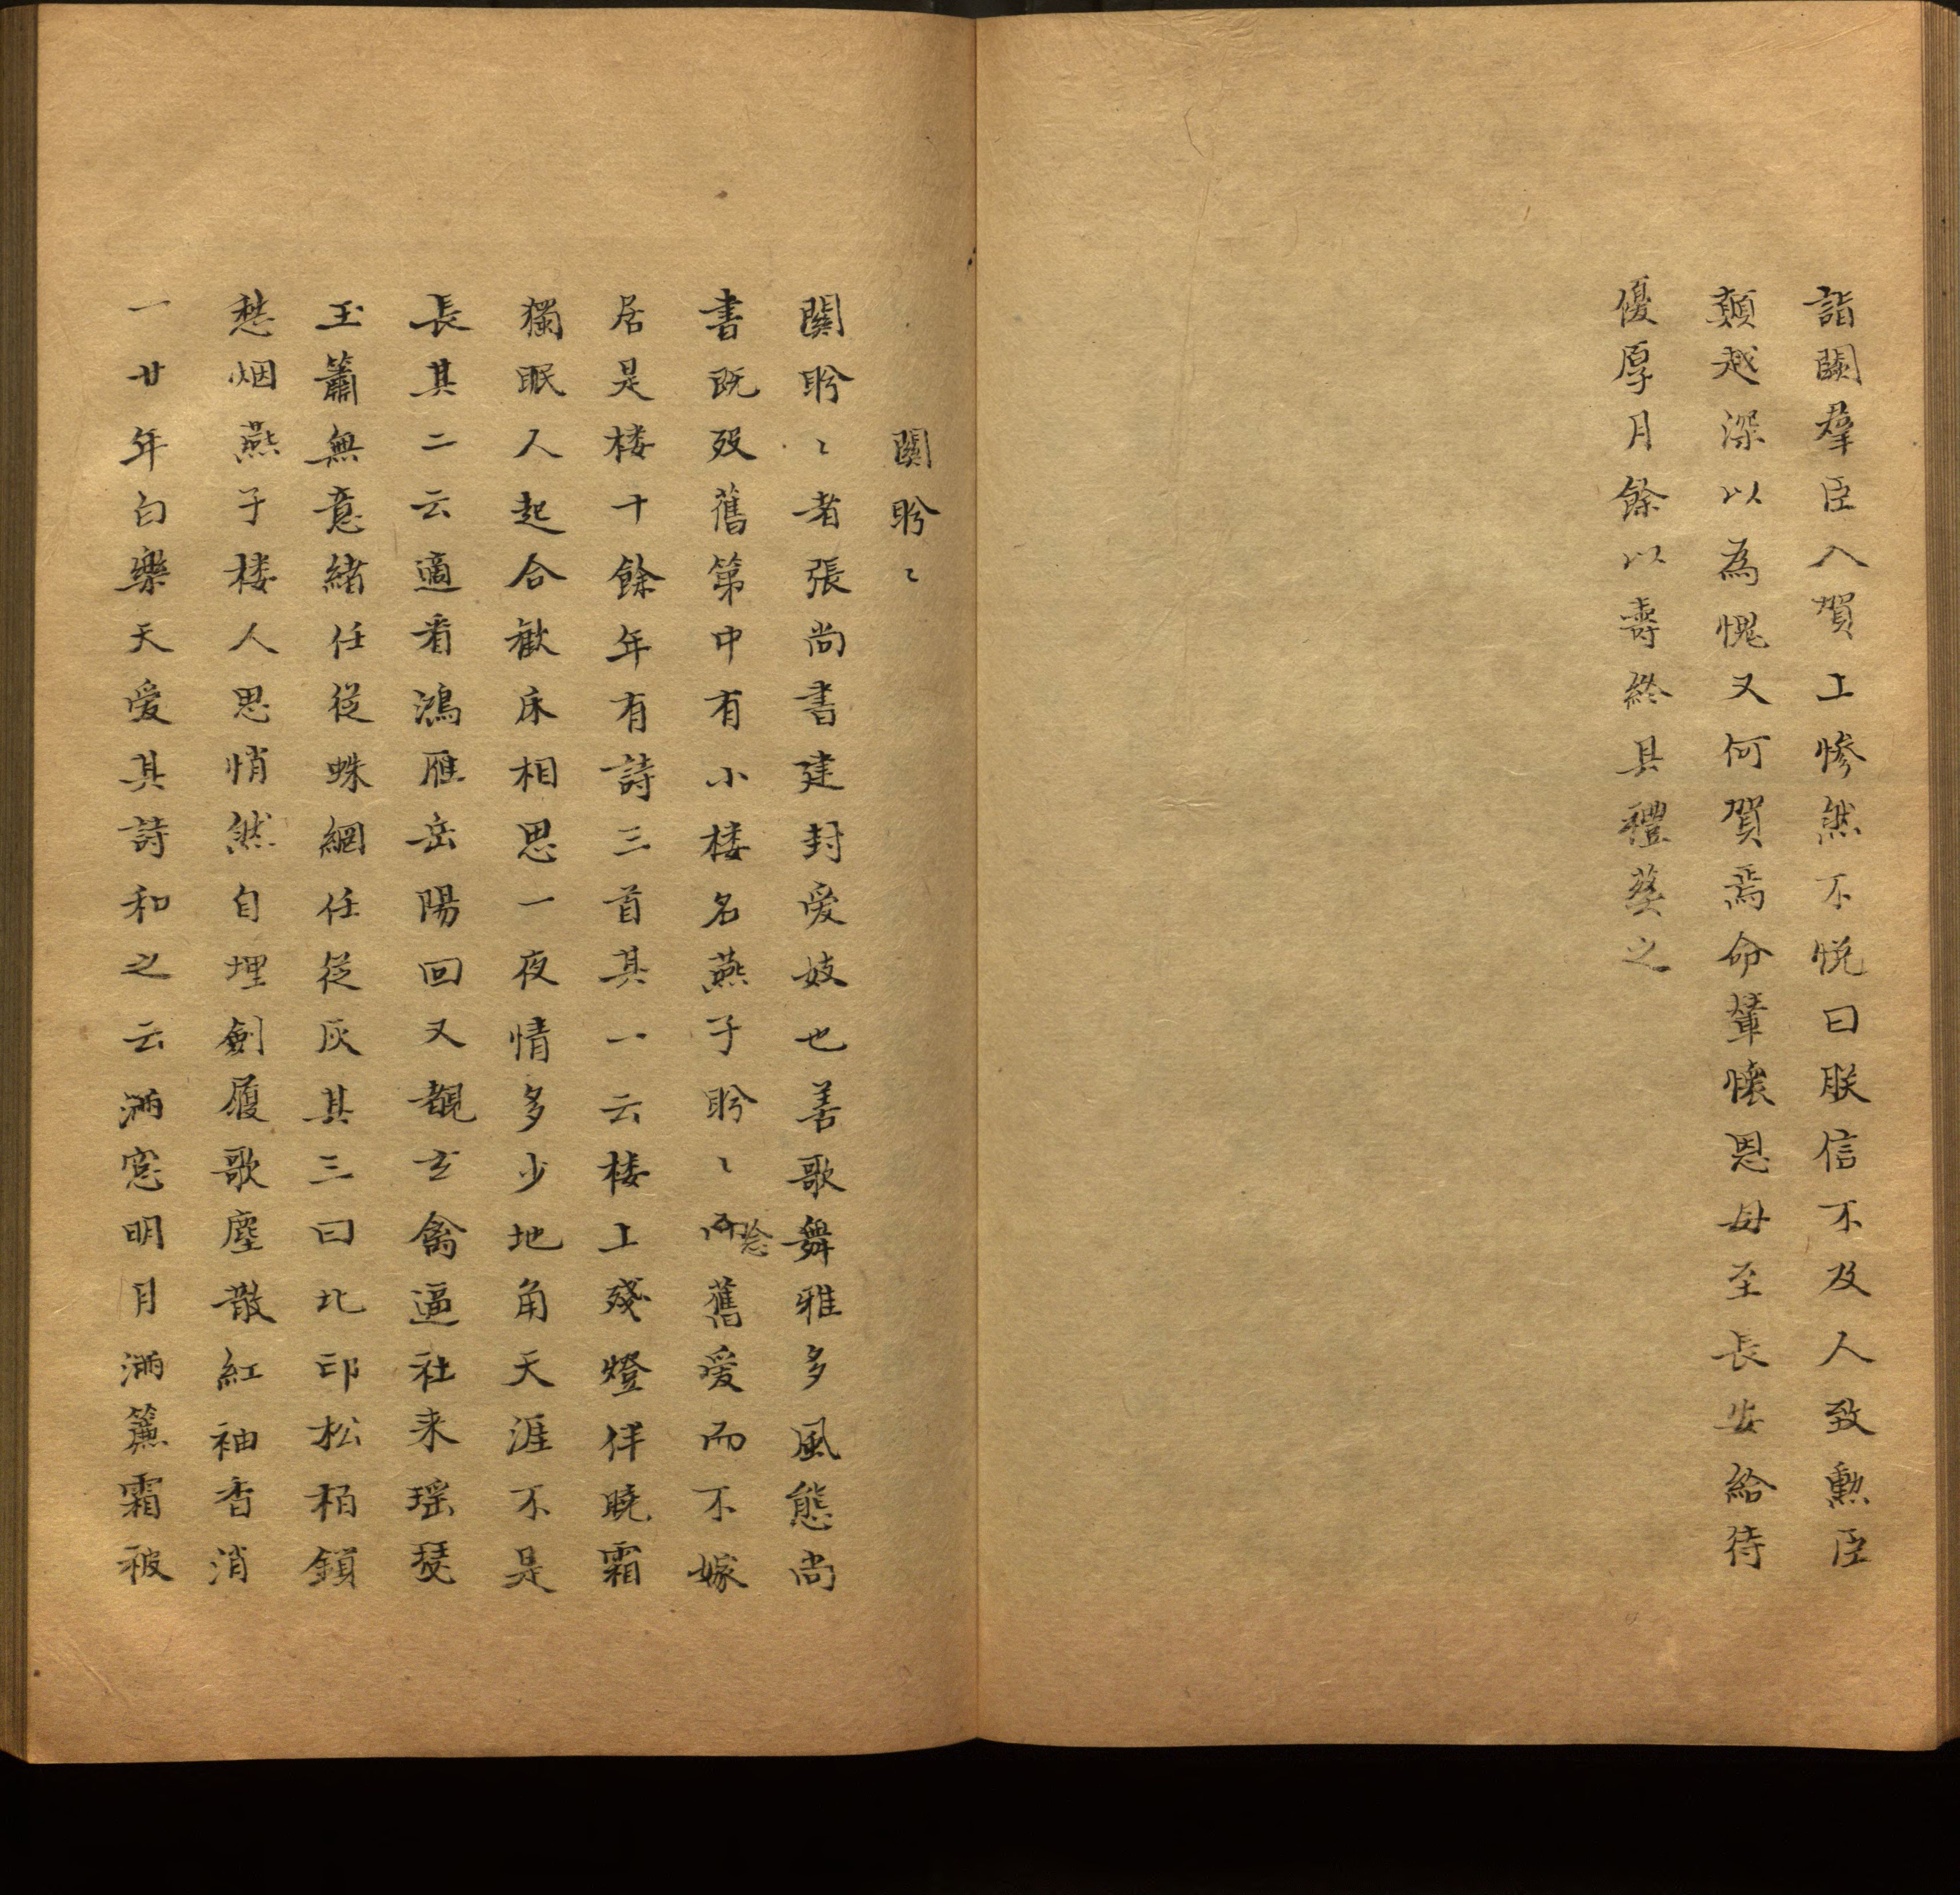 詣闕羣臣入賀上慘然不悦曰朕信不及人致勲臣
顛越深以為愧又何賀焉命輦懷恩母至長安給待
優厚月餘以壽終具禮葬之
關盼〻
關盼〻者張尚書建封爱妓也善歌舞雅多風態尚
書既歿舊第中有小楼名燕子盼〻念舊爱而不嫁
居是楼十餘年有詩三首其一云楼上殘燈伴曉霜
獨眠人起合歡床相思一夜情多少地角天涯不是
長其二云適看鴻雁岳陽回又覩玄禽逼社来瑶瑟
玉簫無意緒任從蛛網任從灰其三曰北邙松栢鎖
愁烟燕子楼人思悄然自埋劍履歌塵散紅袖香消
一廿年白樂天爱其詩和之云滿窓明月滿簾霜被